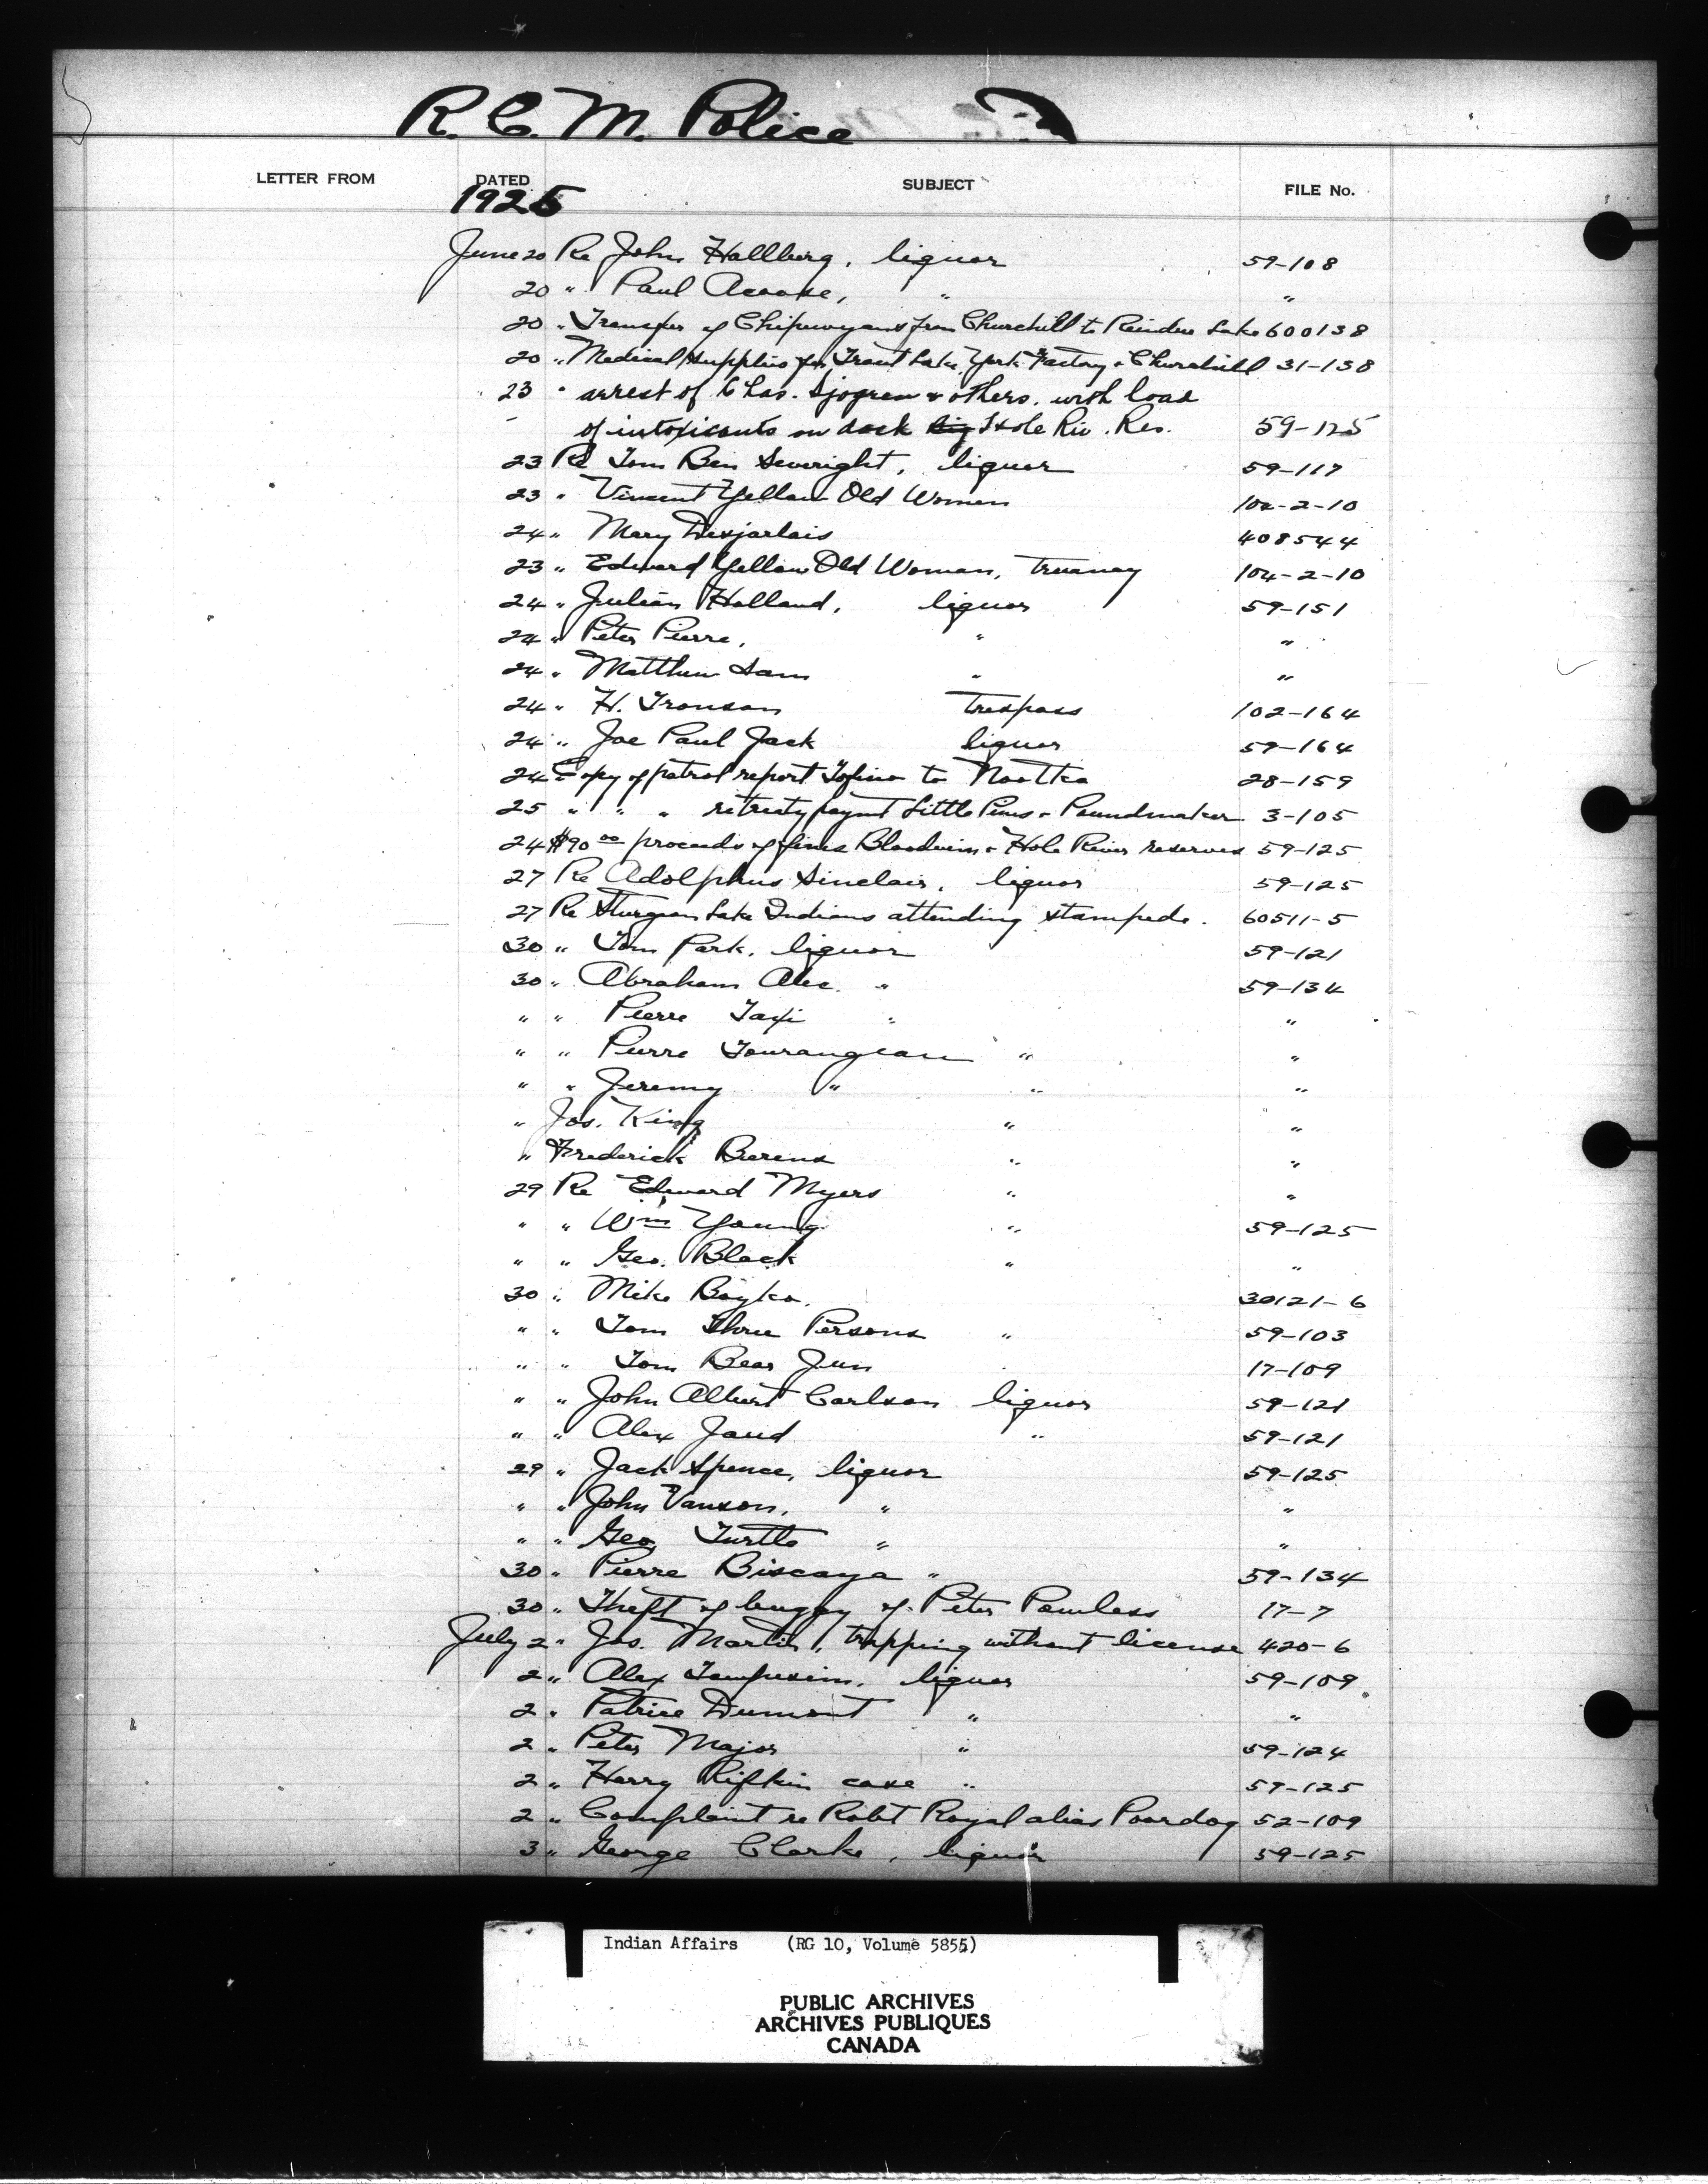 R. C. M. Police
LETTER FROM DATED SUBJECT FILE No.
1925
June 20 Re John Hallberg, liquor 59-108
20 " Paul Acoose, " "
20 " Transfer of Chipewyans from Churchill to Reindeer Lake 600138
20 " Medical supplies for Trout Lake, York Factory & Churchill 31-138
23 " arrest of Chas. Sjogren & others. with load
of intoxicants on dock Hole Riv. Res. 59-125
23 Re Tom Ben Severight, liquor 59-117
23 " Vincent Yellow Old Woman 104-2-10
24 " Mary Desjarlais 408544
23 " Edward Yellow Old Woman, truancy 104-2-10
24 " Julian Holland, liquor 59-151
24 " Peter Pierre, " "
24 " Matthew Sam " "
24 " H. Tronson trespass 102-164
24 " Joe Paul Jack liquor 59-164
24 Copy of patrol report Tofino to Nootka 28-159
25 " " " re treaty paymt Little Pines & Poundmaker 3-105
24 $90 00 proceeds of fines Bloodvein & Hole River reserves 59-125
27 Re Adolphus Sinclair, liquor 59-125
27 Re Sturgeon Lake Indians attending stampede. 60511-5
30 " Tom Park, liquor 59-121
30 " Abraham Alec. " 59-134
" " Pierre Taxi " "
" " Pierre Tourangeau " "
" " Jeremy " " "
" Jos. King " "
" Frederick Berens " "
29 Re Edward Myers " "
" " Wm Young " 59-125
" " Geo. Black " "
30 " Mike Boyko. 30121-6
" " Tom Three Persons " 59-103
" " Tom Bear Jun 17-109
" " John Albert Carlson liquor 59-121
" " Alex Jaud " 59-121
29 " Jack Spence, liquor 59-125
" " John Vanson, " "
" " Geo Turtle " "
30 " Pierre Biscaya " 59-134
30 " Theft of buggy of Peter Pawless 17-7
July 2 " Jos. Martin, trapping without license 420-6
2 " Alex liquor 59-109
2 " Patrice Dumont " "
2 " Peter Major " 59-124
2 " Harry Rifkin case " 59-125
2 " Complaint re Robt Royal alias Poordog 52-109
3 " George Clarke, liquor 59-125
Indian Affairs (RG 10, Volume 5855)
PUBLIC ARCHIVES
ARCHIVES PUBLIQUES
CANADA